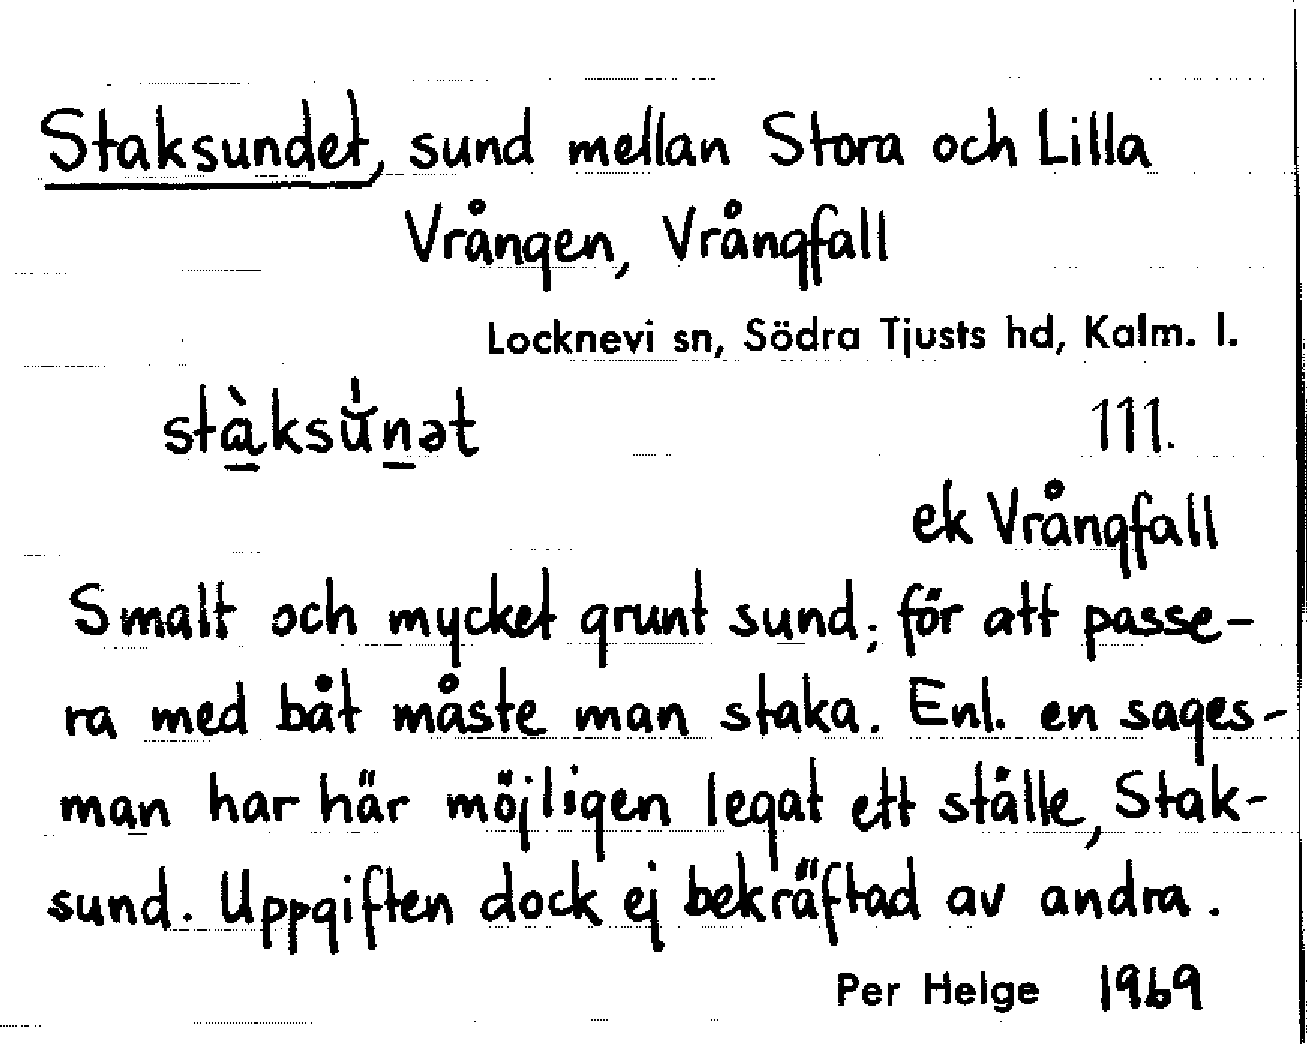 Staksundet, sund mellan Stora och Lilla
Vrången, Vrångfall
Locknevi sn, Södra Tjusts hd, Kalm. l.
stàksu̍̆nət 111.
ek Vrångfall
Smalt och mycket grunt sund; för att passe-
ra med båt måste man staka. Enl. en sages-
man har här möjligen legat ett ställe, Stak-
sund. Uppgiften dock ej bekräftad av andra.
Per Helge 1969